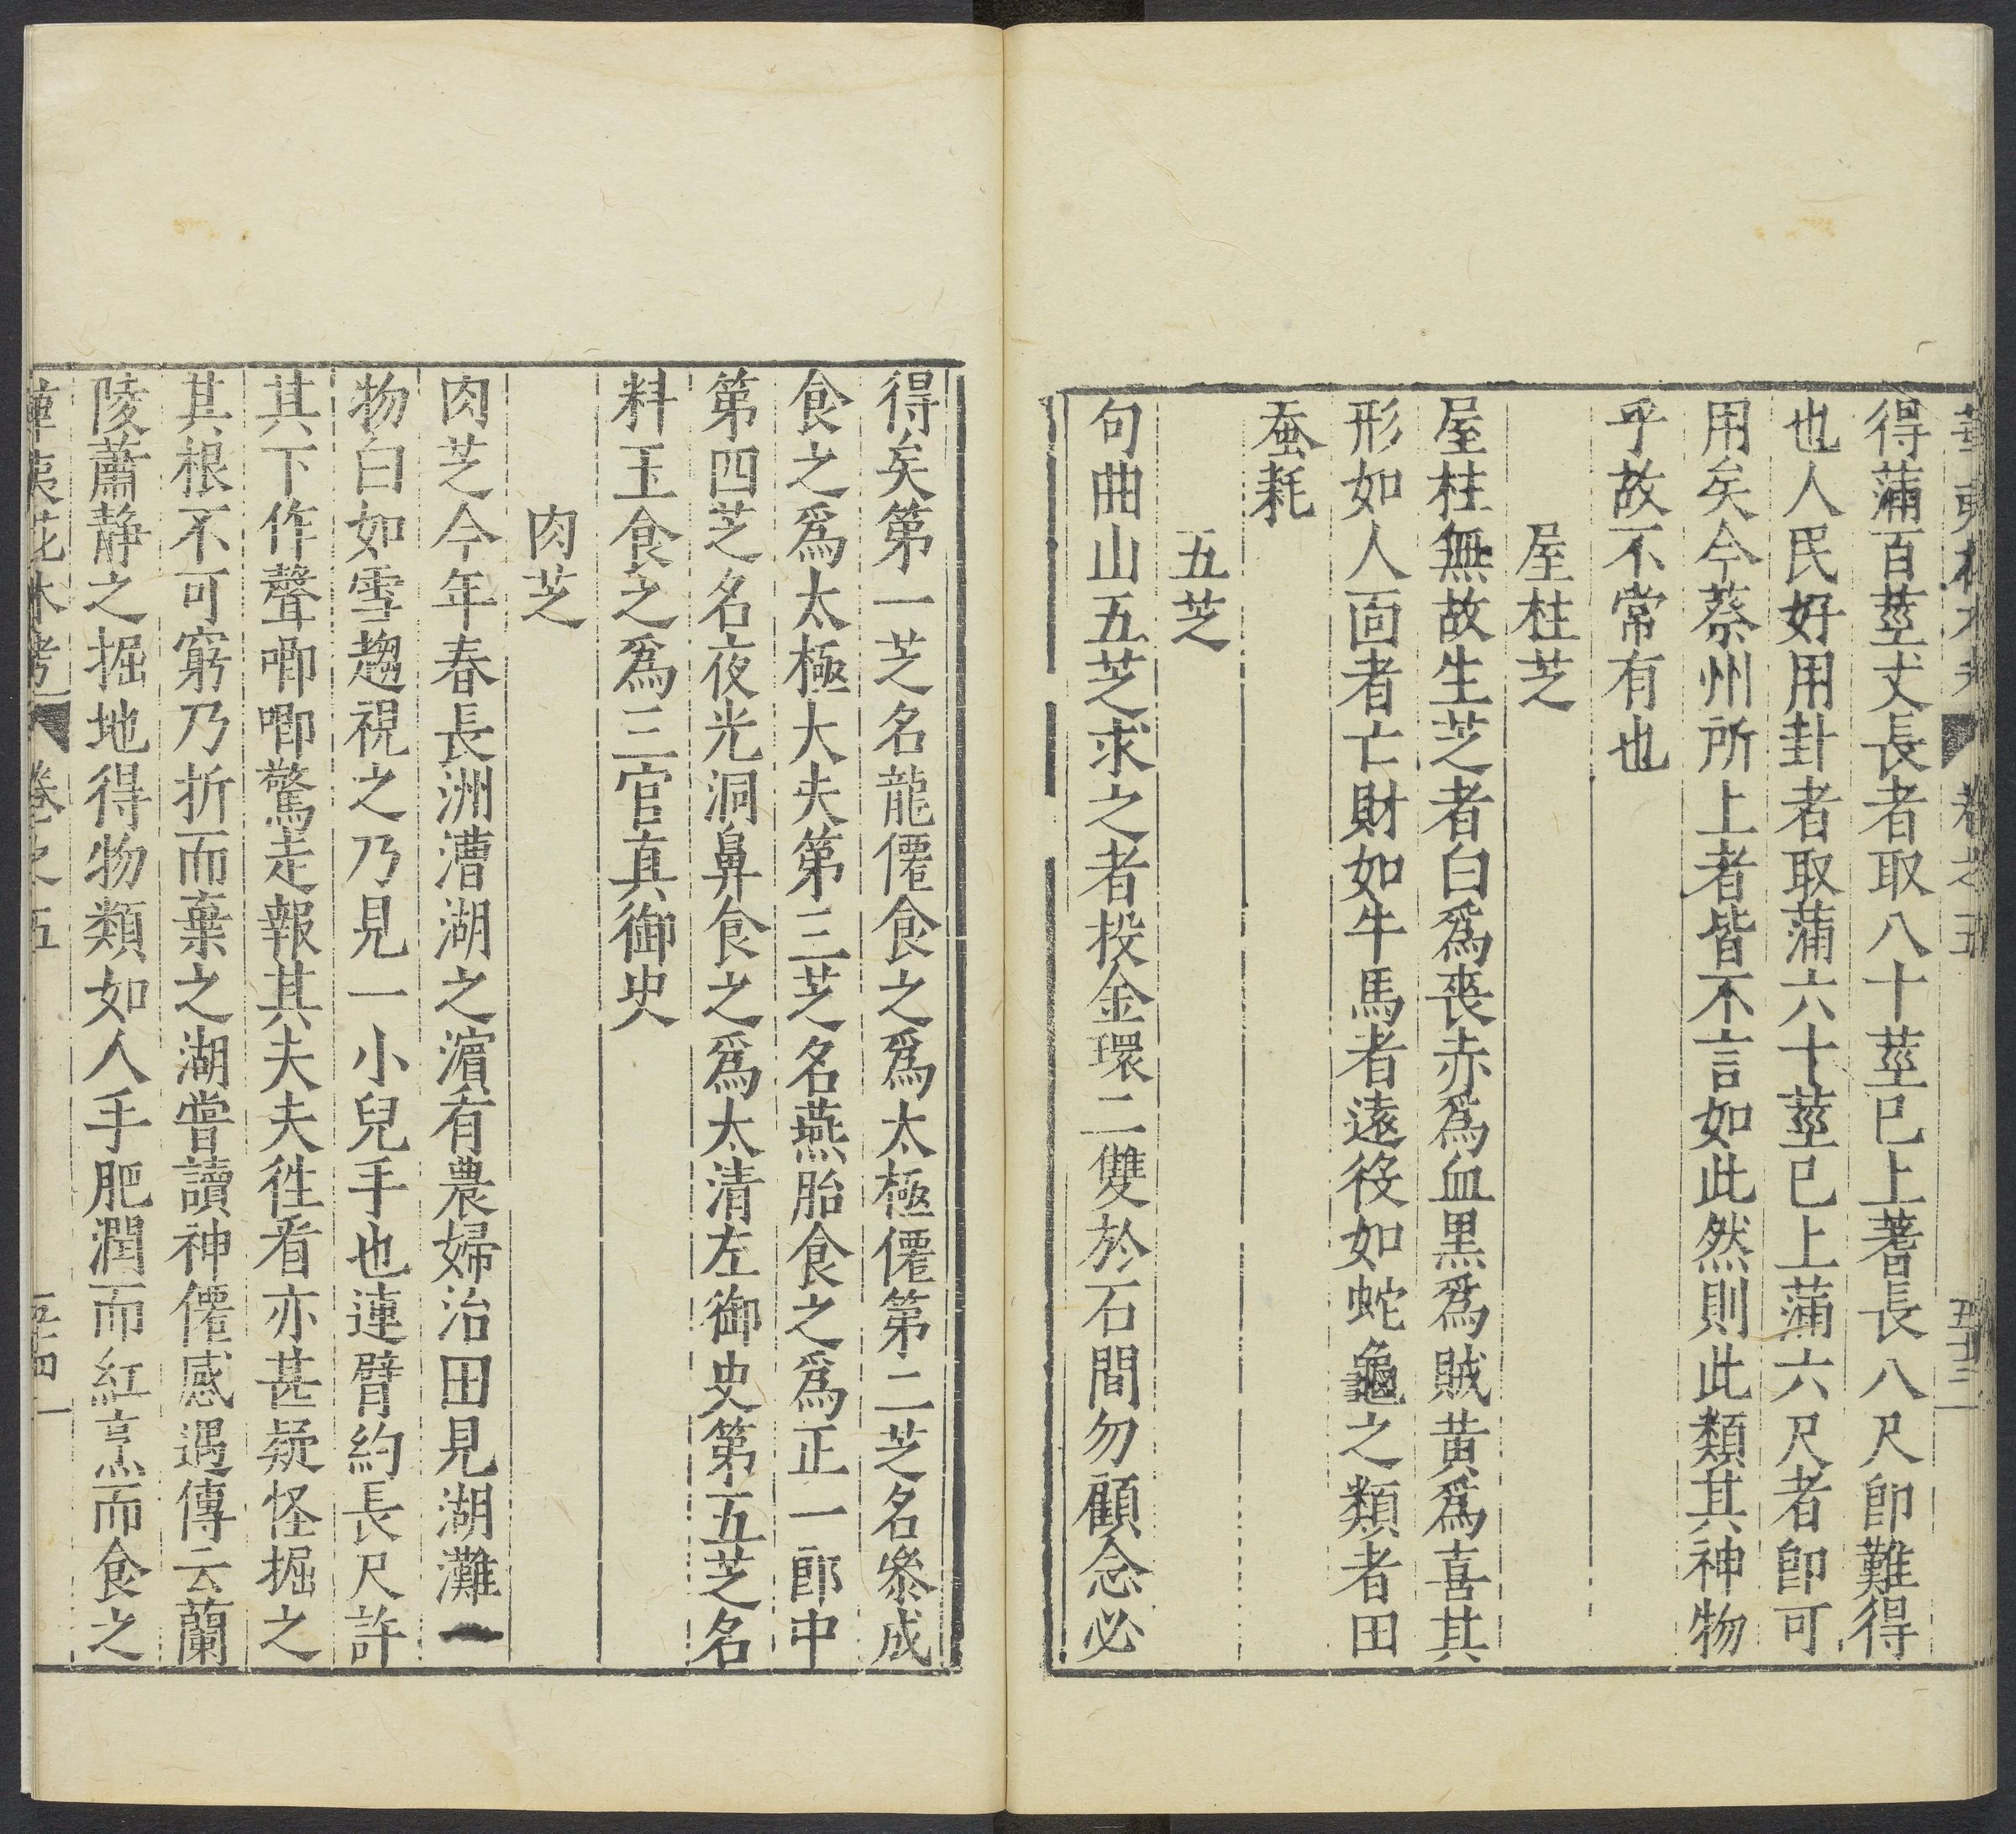 得蒲百莖丈長者取八十莖已上蓍長八尺卽難得
也人民好用卦者取蒲六十莖已上蒲六尺者卽可
用矣今蔡州所上者皆不言如此然則此類其神物
乎故不常有也
屋柱芝
屋柱無故生芝者白爲喪赤爲血黒爲賊黄爲喜其
形如人面者亡財如牛馬者遠役如蛇龜之類者田
蚕耗
五芝
句曲山五芝求之者投金環二雙於石間勿顧念必
得矣第一芝名龍僊食之爲太極僊第二芝名參成
食之爲太極大夫第三芝名燕胎食之爲正一郎中
第四芝名夜光洞鼻食之爲太清左御史第五芝名
料玉食之爲三官真御史
肉芝
肉芝今年春長洲漕湖之濵有農婦治田見湖灘一
物白如雪趨視之乃見一小兒手也連臂約長尺許
其下作聲唧唧驚走報其夫夫徃看亦甚疑怪掘之
其根不可窮乃折而棄之湖嘗讀神僊感遇傳云蘭
陵蕭静之掘地得物類如人手肥潤而紅烹而食之
華夷花木考 卷之五 五十四